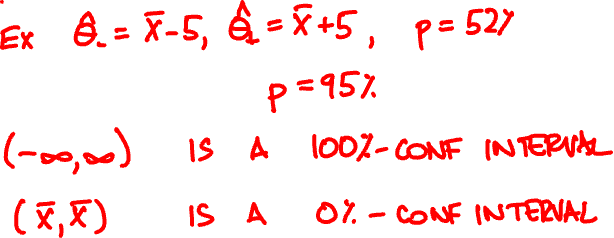 Ex θ̂₋ = x̄-5, θ̂₊ = x̄+5, p=52%
p=95%
(-∞,∞) IS A 100%-CONF INTERVAL
(x̄,x̄) IS A 0%-CONF INTERVAL